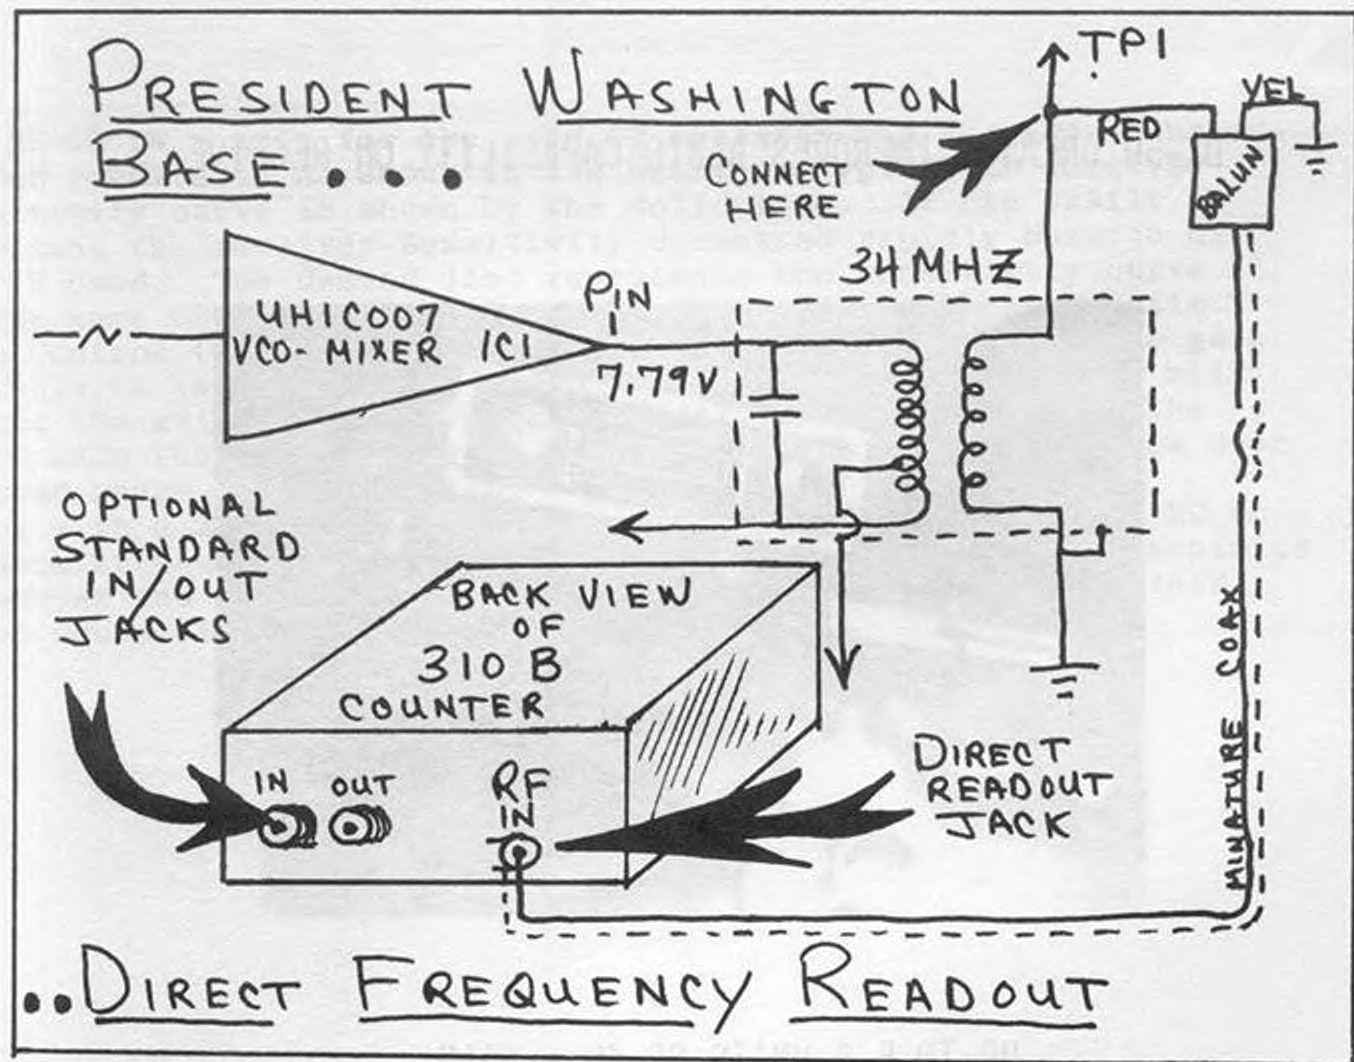 PRESIDENT WASHINGTON
BASE....
TP1
YEL
RED
BALUN
CONNECT
HERE
34 MHZ
PIN
1
UHIC007
VCO-MIXER IC1
7.79V
OPTIONAL
STANDARD
IN/OUT
JACKS
BACK VIEW
OF
310 B
COUNTER
IN OUT
RF
IN
DIRECT
READOUT
JACK
MINATURE COAX
..DIRECT FREQUENCY READOUT